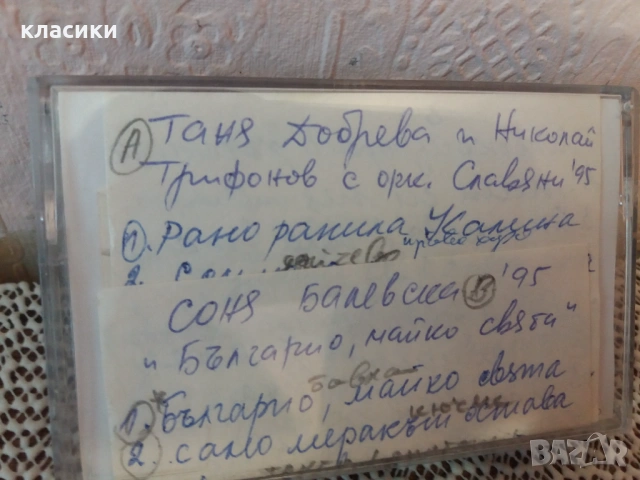 класики
А Таня Добрева и Николай
Трифонов с орк. Славяни '95
1. Рано ранила Калина
2.
Соня Балевска B '95
"Българио, майко свята"
бавна
1. Българио, майко свята
2. само меракът остава
BAZAR